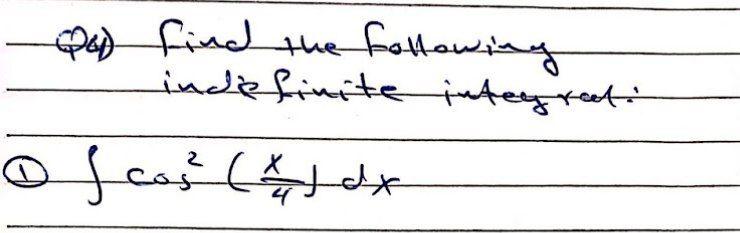 Q4) Find the following
indefinite integral:
① ∫ cos² (x/4) dx